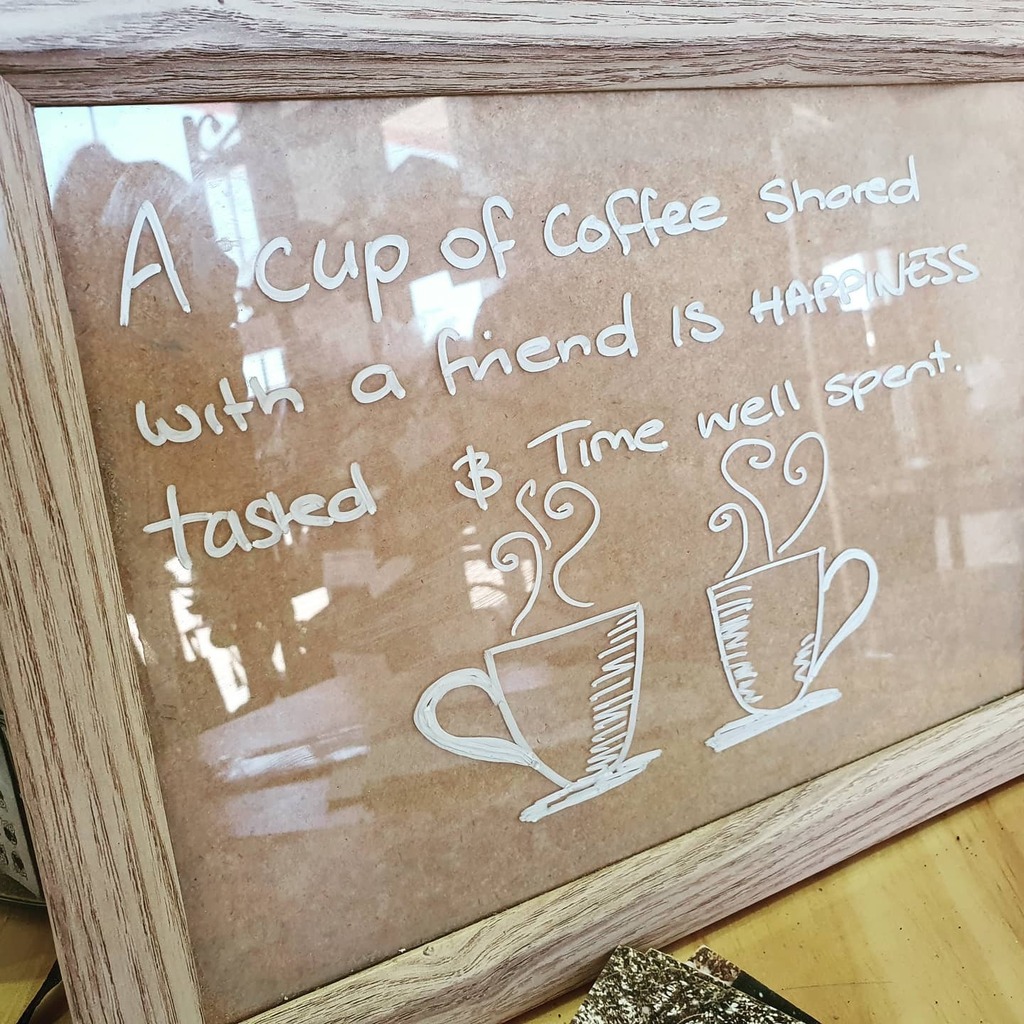 A cup of Coffee Shared
with a friend is HAPPINESS
tasted & Time well spent.